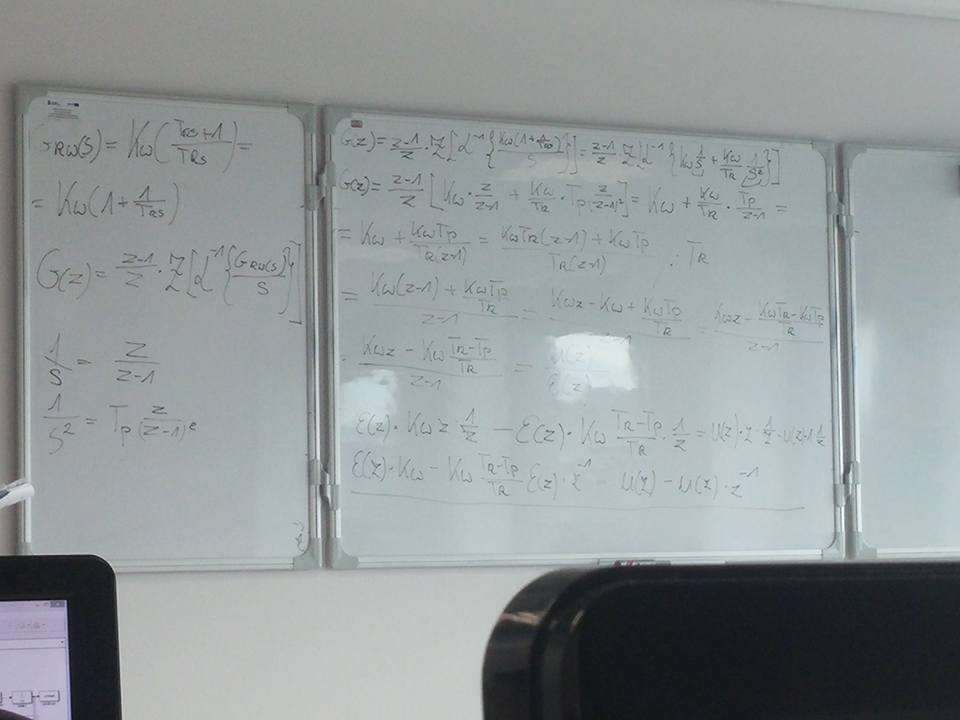 G_RW(s) = K_ω(T_R s+1 / T_R s) =
= K_ω(1 + 1/T_R s)
G(z) = z-1/z · Z[L^-1{G_RW(s)/s}]
1/s = z/z-1
1/s² = T_p z/(z-1)²
G(z) = z-1/z · Z[L^-1{K_ω(1+1/T_R s)/s}] = z-1/z Z[L^-1{K_ω 1/s + K_ω/T_R 1/s²}]
G(z) = z-1/z [K_ω · z/z-1 + K_ω/T_R · T_p z/(z-1)²] = K_ω + K_ω/T_R · T_p/z-1 =
= K_ω + K_ω T_p/T_R(z-1) = K_ω T_R(z-1) + K_ω T_p/T_R(z-1) : T_R
= K_ω(z-1) + K_ω T_p/T_R / z-1 = K_ω z - K_ω + K_ω T_p/T_R / z-1 = K_ω z - K_ω T_R - K_ω T_p/T_R / z-1
= K_ω z - K_ω T_R-T_p/T_R / z-1 = U(z)/E(z)
E(z) · K_ω z 1/z - E(z) · K_ω T_R-T_p/T_R · 1/z = U(z) · z 1/z - U(z) · 1 1/z
E(z) · K_ω - K_ω T_R-T_p/T_R E(z) · z^-1 = U(z) - U(z) · z^-1